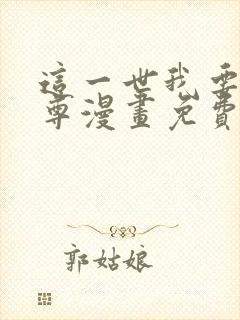 這一世我要
尊漫畫免費
郭姑娘